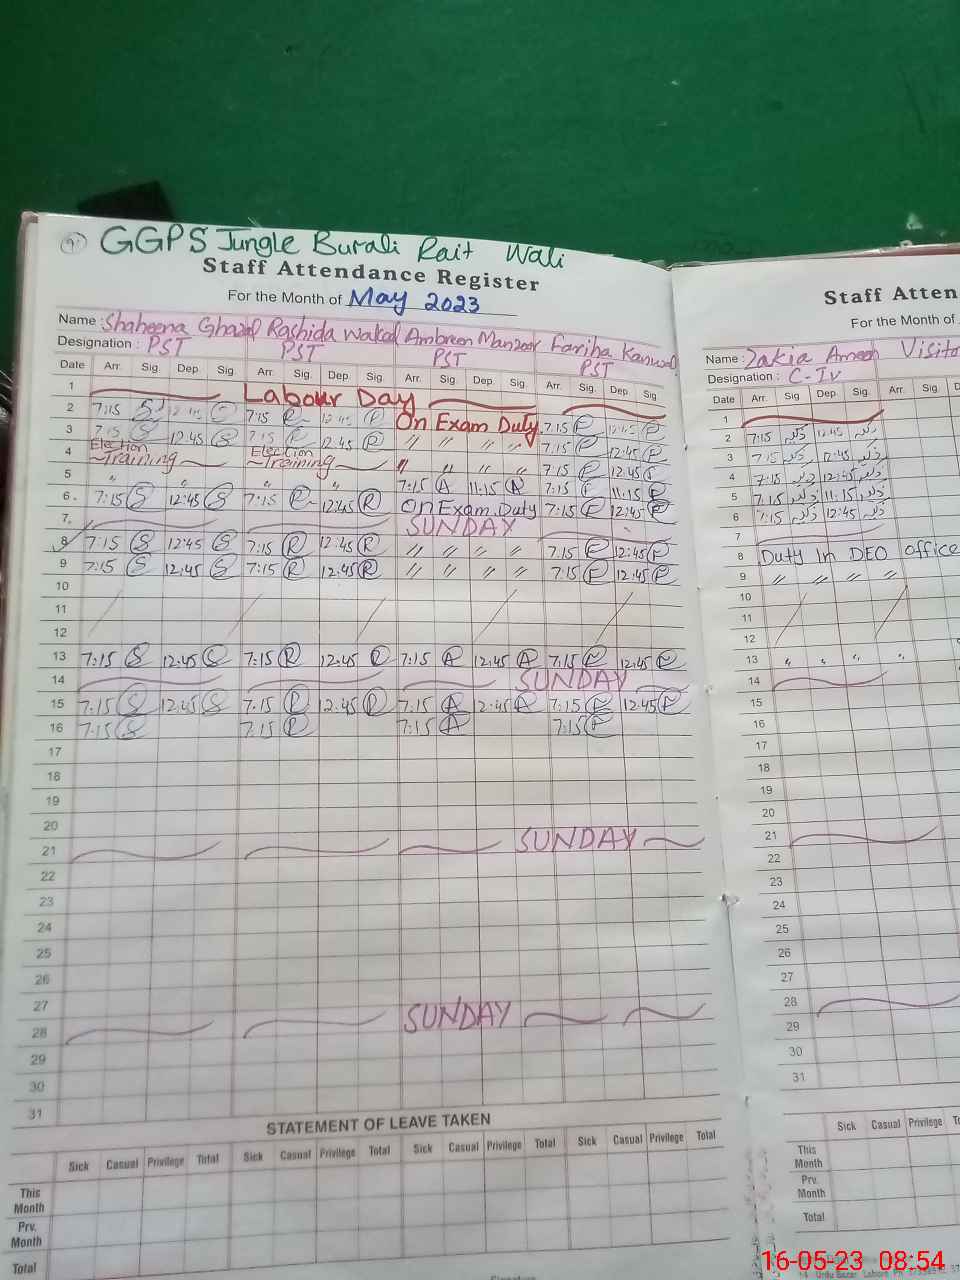 9
GGPS Jungle Burali Rait Wali
Staff Attendance Register
For the Month of May 2023
Name : Shaheena Ghazal Rashida Waked Ambreen Manzoor Fariha Kanwal
Designation : PST PST PST PST
Date Arr. Sig. Dep. Sig. Arr. Sig. Dep. Sig. Arr. Sig. Dep. Sig. Arr. Sig. Dep. Sig.
1 Labour Day
2 7:15 S 12:45 S 7:15 R 12:45 R On Exam Duty 7:15 F 12:45 F
3 7:15 S 12:45 S 7:15 R 12:45 R " " " " 7:15 F 12:45 F
4 Election Training Election Training " " " " 7:15 F 12:45 F
5 " " " " 7:15 A 11:15 A 7:15 F 11:15 F
6 7:15 S 12:45 S 7:15 R 12:45 R On Exam Duty 7:15 F 12:45 F
7 SUNDAY
8 7:15 S 12:45 S 7:15 R 12:45 R " " " " 7:15 F 12:45 F
9 7:15 S 12:45 S 7:15 R 12:45 R " " " " 7:15 F 12:45 F
10
11
12
13 7:15 S 12:45 S 7:15 R 12:45 R 7:15 A 12:45 A 7:15 F 12:45 F
14 SUNDAY
15 7:15 S 12:45 S 7:15 R 12:45 R 7:15 A 12:45 A 7:15 F 12:45 F
16 7:15 S 7:15 R 7:15 A 7:15 F
17
18
19
20
21 SUNDAY
22
23
24
25
26
27
28 SUNDAY
29
30
31
STATEMENT OF LEAVE TAKEN
Sick Casual Privilege Total Sick Casual Privilege Total Sick Casual Privilege Total Sick Casual Privilege Total
This Month
Prv. Month
Total
Staff Atten
For the Month of
Name : Zakia Ameen Visito
Designation : C-IV
Date Arr. Sig. Dep. Sig. Arr. Sig. D
1
2 7:15 12:45
3 7:15 12:45
4 7:15 12:45
5 7:15 11:15
6 7:15 12:45
7
8 Duty In DEO office
9 " " " "
10
11
12
13 " " " "
14
15
16
17
18
19
20
21
22
23
24
25
26
27
28
29
30
31
Sick Casual Privilege To
This Month
Prv. Month
Total
16-05-23 08:54
Urdu Bazar Lahore